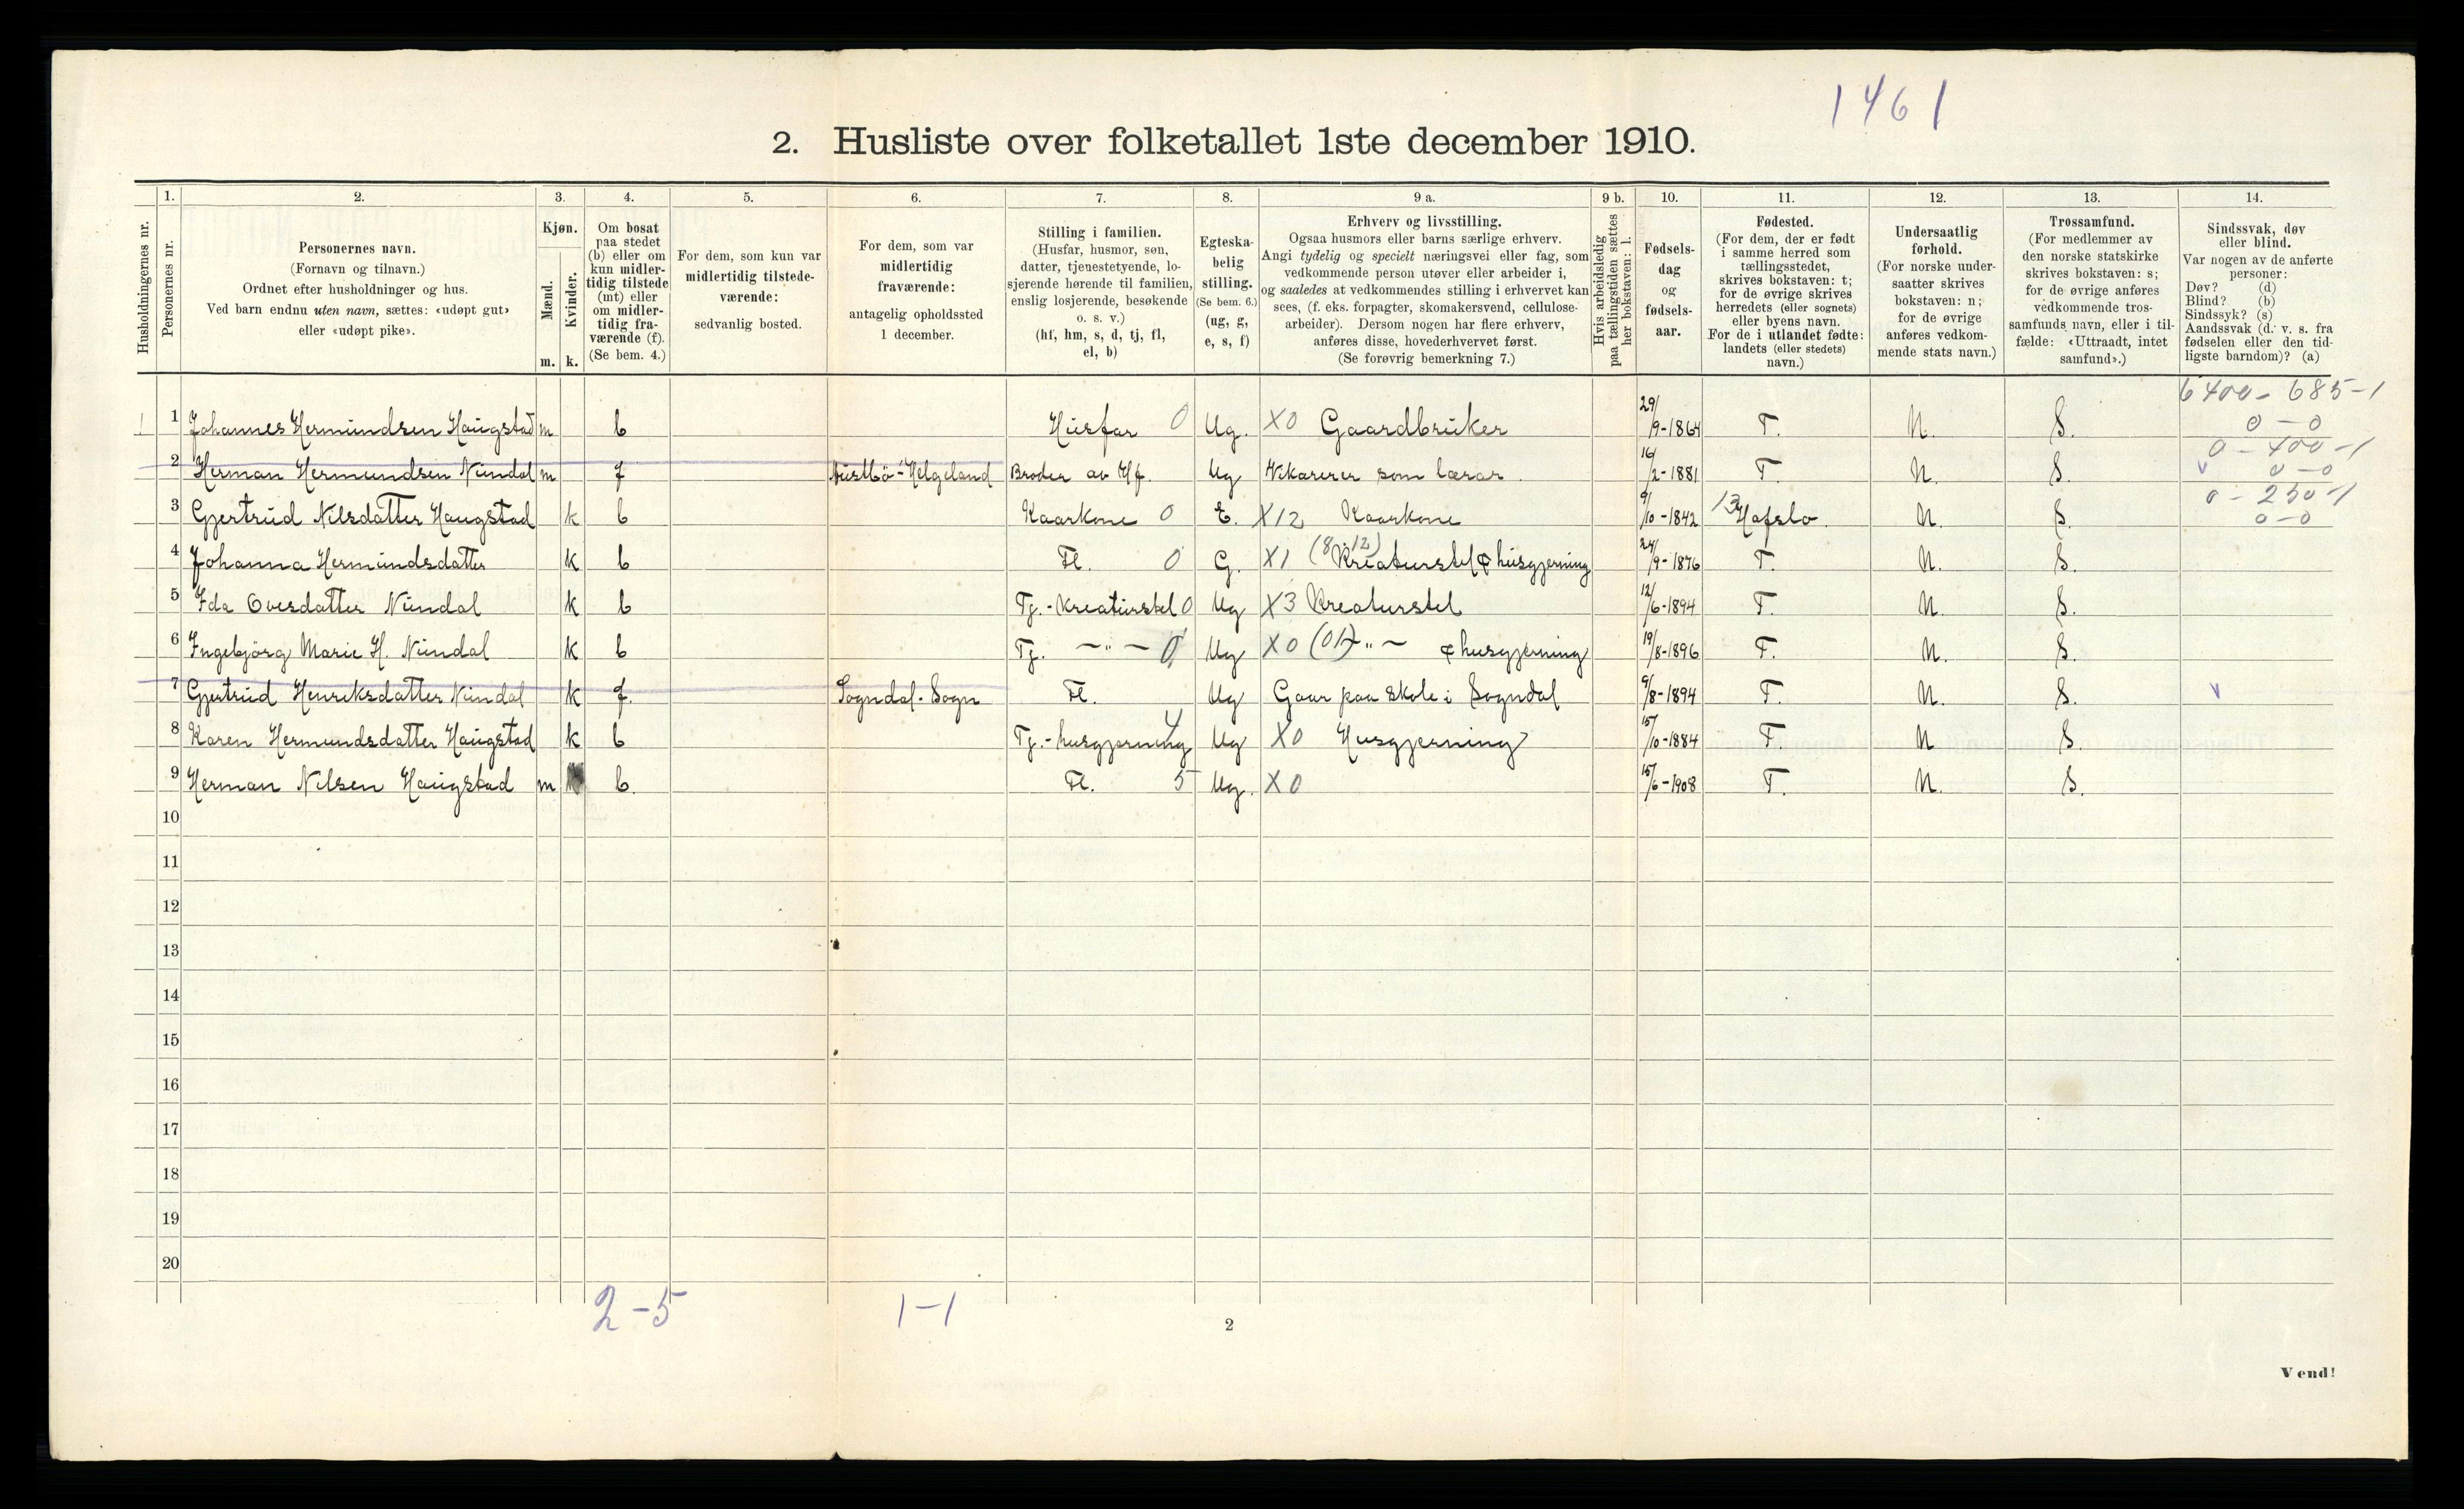 1461
2. Husliste over folketallet 1ste december 1910.
Husholdningernes nr.
1.
Personernes nr.
2.
Personernes navn.
(Fornavn og tilnavn.)
Ordnet efter husholdninger og hus.
Ved barn endnu uten navn, sættes: «udøpt gut»
eller «udøpt pike».
3.
Kjøn.
Mænd.
Kvinder.
m. k.
4.
Om bosat
paa stedet
(b) eller om
kun midler-
tidig tilstede
(mt) eller
om midler-
tidig fra-
værende (f).
(Se bem. 4.)
5.
For dem, som kun var
midlertidig tilstede-
værende:
sedvanlig bosted.
6.
For dem, som var
midlertidig
fraværende:
antagelig opholdssted
1 december.
7.
Stilling i familien.
(Husfar, husmor, søn,
datter, tjenestetyende, lo-
sjerende hørende til familien,
enslig losjerende, besøkende
o. s. v.)
(hf, hm, s, d, tj, fl,
el, b)
8.
Egteska-
belig
stilling.
(Se bem. 6.)
(ug, g,
e, s, f)
9 a.
Erhverv og livsstilling.
Ogsaa husmors eller barns særlige erhverv.
Angi tydelig og specielt næringsvei eller fag, som
vedkommende person utøver eller arbeider i,
og saaledes at vedkommendes stilling i erhvervet kan
sees, (f. eks. forpagter, skomakersvend, cellulose-
arbeider). Dersom nogen har flere erhverv,
anføres disse, hovederhvervet først.
(Se forøvrig bemerkning 7.)
9 b.
Hvis arbeidsledig
paa tællingstiden sættes
her bokstaven: l.
10.
Fødsels-
dag
og
fødsels-
aar.
11.
Fødested.
(For dem, der er født
i samme herred som
tællingsstedet,
skrives bokstaven: t;
for de øvrige skrives
herredets (eller sognets)
eller byens navn.
For de i utlandet fødte:
landets (eller stedets)
navn.)
12.
Undersaatlig
forhold.
(For norske under-
saatter skrives
bokstaven: n;
for de øvrige
anføres vedkom-
mende stats navn.)
13.
Trossamfund.
(For medlemmer av
den norske statskirke
skrives bokstaven: s;
for de øvrige anføres
vedkommende tros-
samfunds navn, eller i til-
fælde: «Uttraadt, intet
samfund».)
14.
Sindssvak, døv
eller blind.
Var nogen av de anførte
personer:
Døv? (d)
Blind? (b)
Sindssyk? (s)
Aandssvak (d. v. s. fra
fødselen eller den tid-
ligste barndom)? (a)
6400 - 685-1
1 1 Johannes Hermundsen Haugstad m b Husfar 0 Ug. X0 Gaardbruker 29/9-1864 T. N. S. 0-0
0-400-1
2 Herman Hermundsen Nundal m f Broder av Hf. Ug Vikarerer som lærar. 16/2-1881 T. N. S. v 0-0
0-250-1
3 Gjertrud Nilsdatter Haugstad k b Kaarkone 0 E. X12 Kaarkone 9/10-1842 13 Hafslo. N. S. 0-0
4 Johanna Hermundsdatter k b Fl. 0 G. X1 (8.12) Kreaturstel & husgjerning 24/9-1876 T. N. S.
5 Ida Ovesdatter Nundal k b Tj.-kreaturstel 0 Ug X3 Kreaturstel 12/6-1894 T. N. S.
6 Ingebjörg Marie H. Nundal k b Tj. -"- 0 Ug X0 (01) -"- & husgjerning 19/8-1896 T. N. S.
7 Gjertrud Henriksdatter Nundal k f. Sogndal. Sogn Fl. Ug Gaar paa skole i Sogndal 9/8-1894 T. N. S. v
8 Karen Hermundsdatter Haugstad k b Tj.-husgjerning 4 Ug X0 Husgjerning 15/10-1884 T. N S.
9 Herman Nilsen Haugstad m b. Fl. 5 Ug. X0 15/6-1908 T. N. S.
10
11
12
13
14
15
16
17
18
19
20
2-5 1-1
2
Vend!